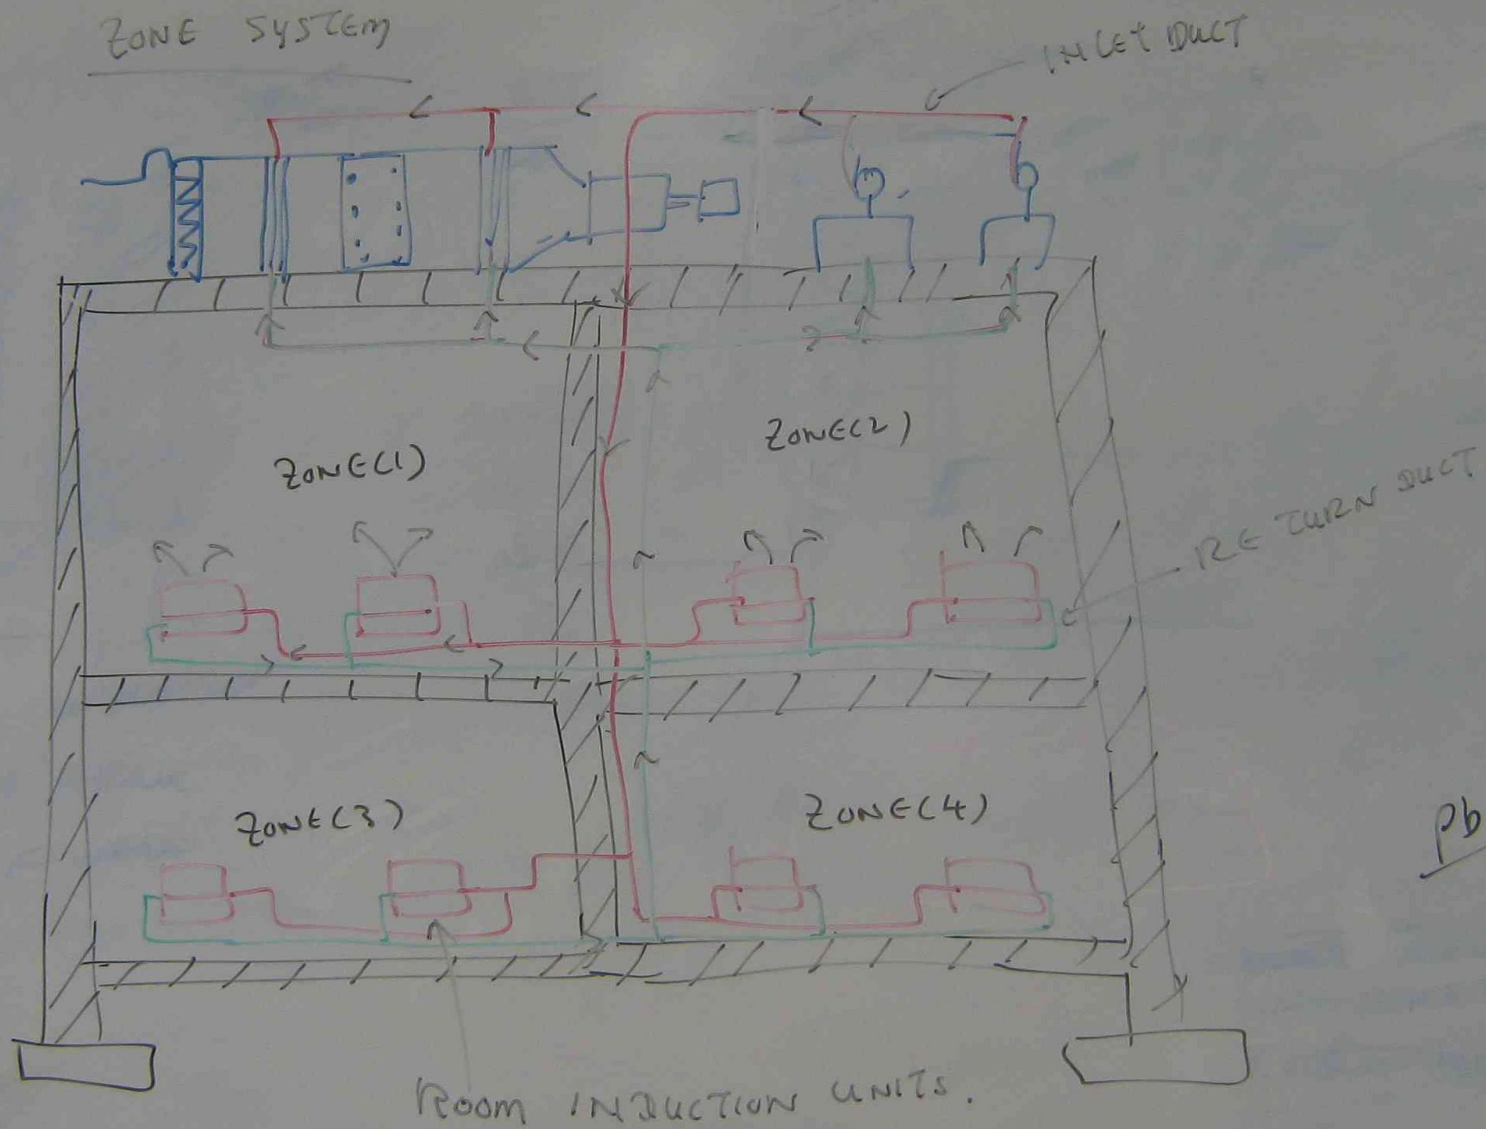 ZONE SYSTEM
INLET DUCT
ZONE(1)
ZONE(2)
RETURN DUCT
ZONE(3)
ZONE(4)
pb
ROOM INDUCTION UNITS.